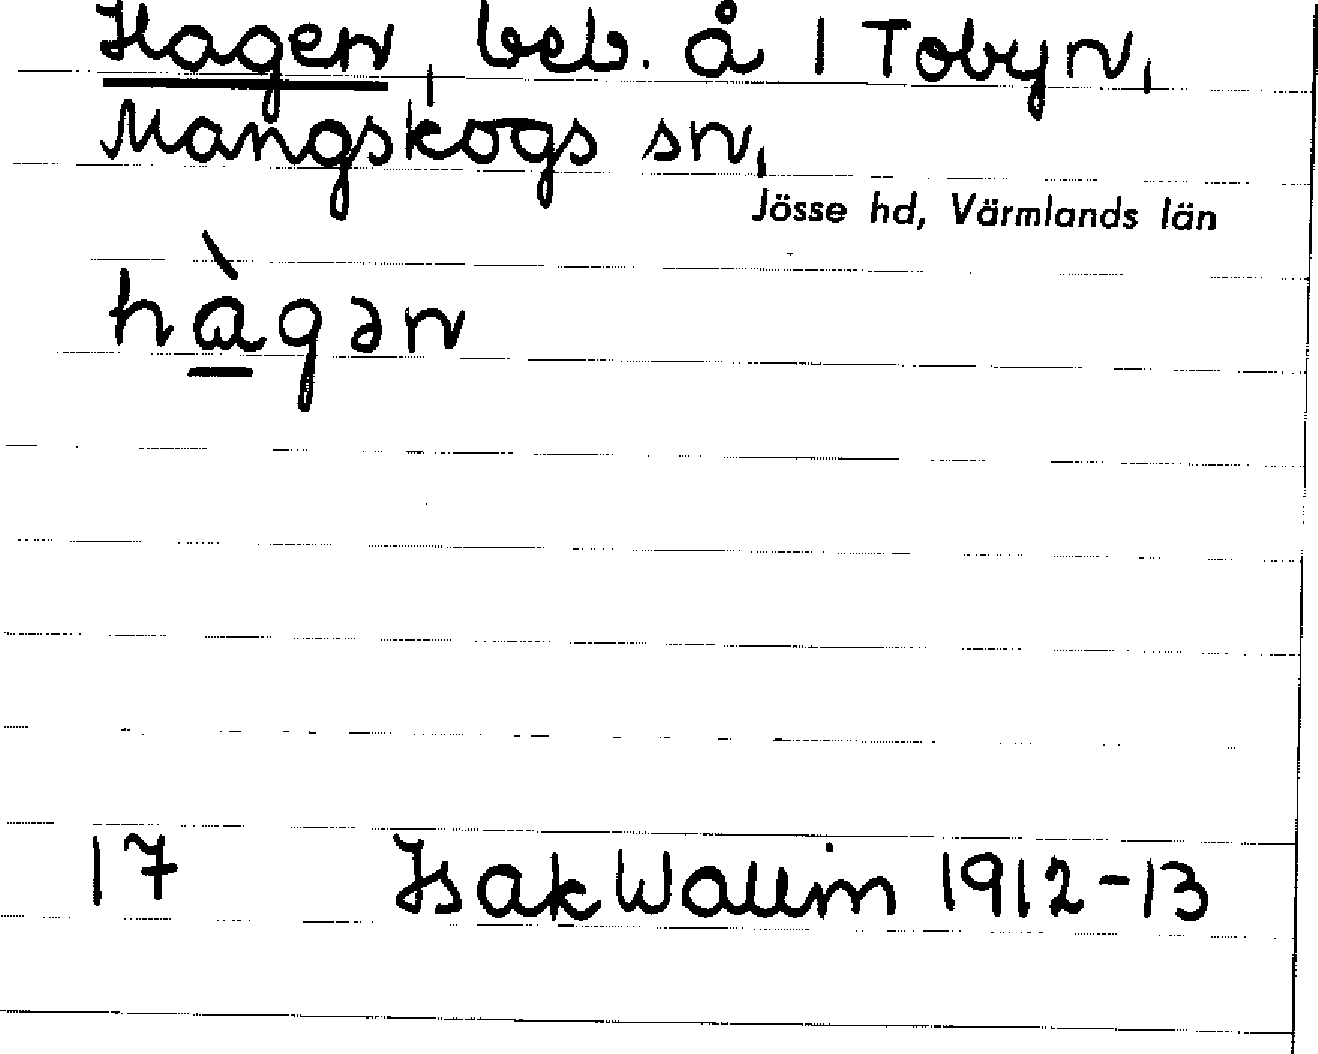 Hagen, beb. å 1 Tobyn,
Mangskogs sn,
Jösse hd, Värmlands län
hàgən
17 Isak Wallin 1912-13